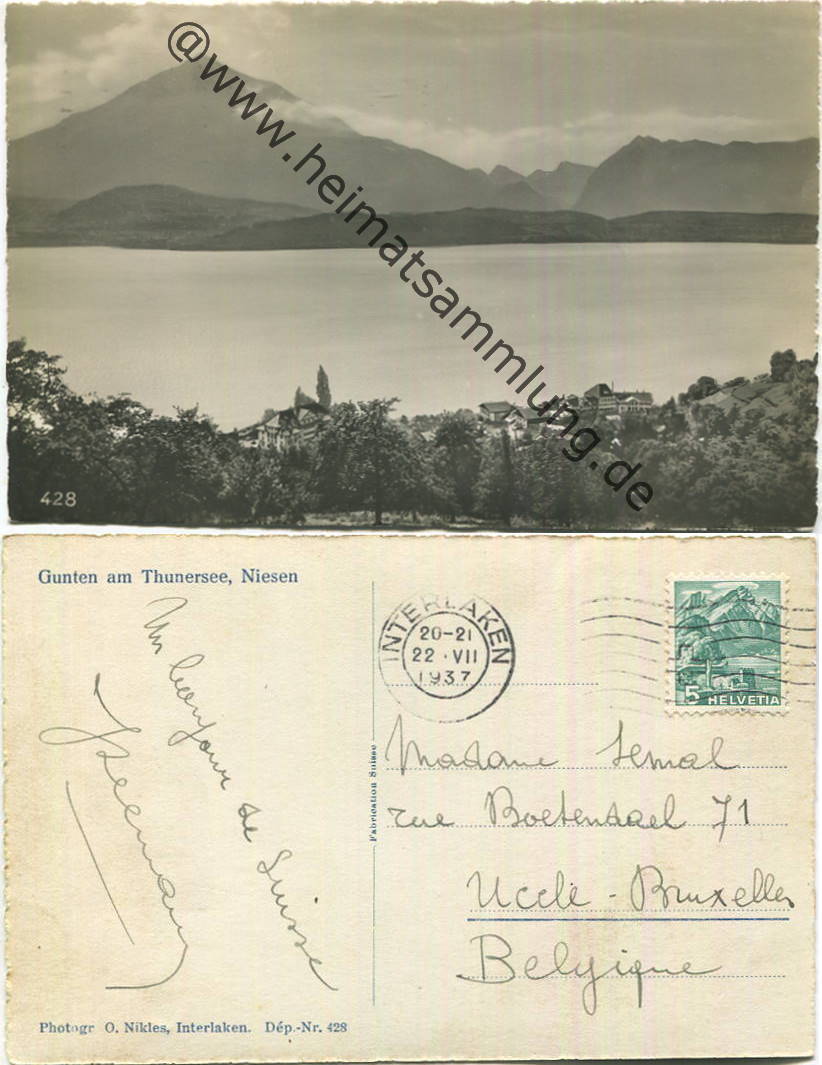 @www.heimatsammlung.de
428
Gunten am Thunersee, Niesen
Un bonjour de Suisse
INTERLAKEN
20-21
22 · VII
1937
5 HELVETIA
Fabrication Suisse
Madame Semal
rue Boetendael 71
Uccle - Bruxelles
Belgique
Photogr O. Nikles, Interlaken. Dép.-Nr. 428